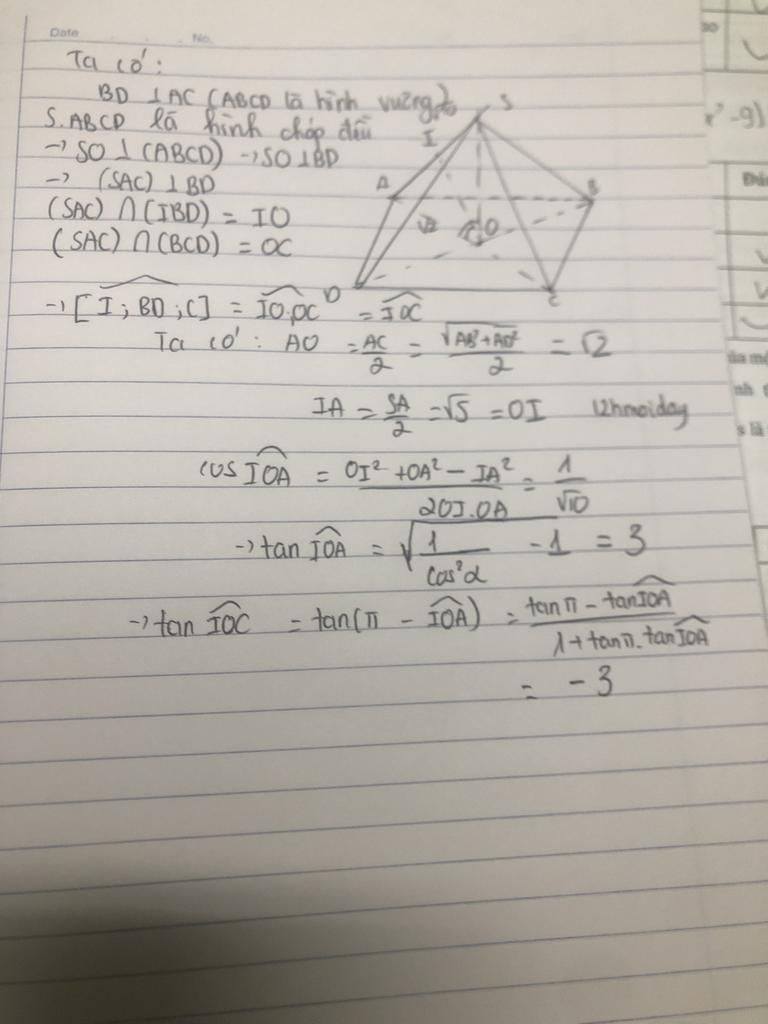 Date No.
Ta có:
BD ⊥ AC (ABCD là hình vuông)
S.ABCD là hình chóp đều
→ SO ⊥ (ABCD) → SO ⊥ BD
→ (SAC) ⊥ BD
(SAC) ∩ (IBD) = IO
(SAC) ∩ (BCD) = OC
S
I
A
B
O
D
C
→ [I; BD; C] = IO,OC = IOC
Ta có: AO = AC/2 = √(AB² + AD²)/2 = √2
IA = SA/2 = √5 = OI 12hmoiday
cos IOA = (OI² + OA² − IA²)/(2OI.OA) = 1/√10
→ tan IOA = √(1/cos²α − 1) = 3
→ tan IOC = tan(π − IOA) = (tan π − tan IOA)/(1 + tan π . tan IOA)
= −3
² - 9)